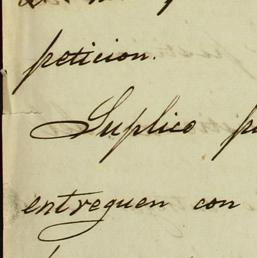 peticion.
Suplico
entreguen con